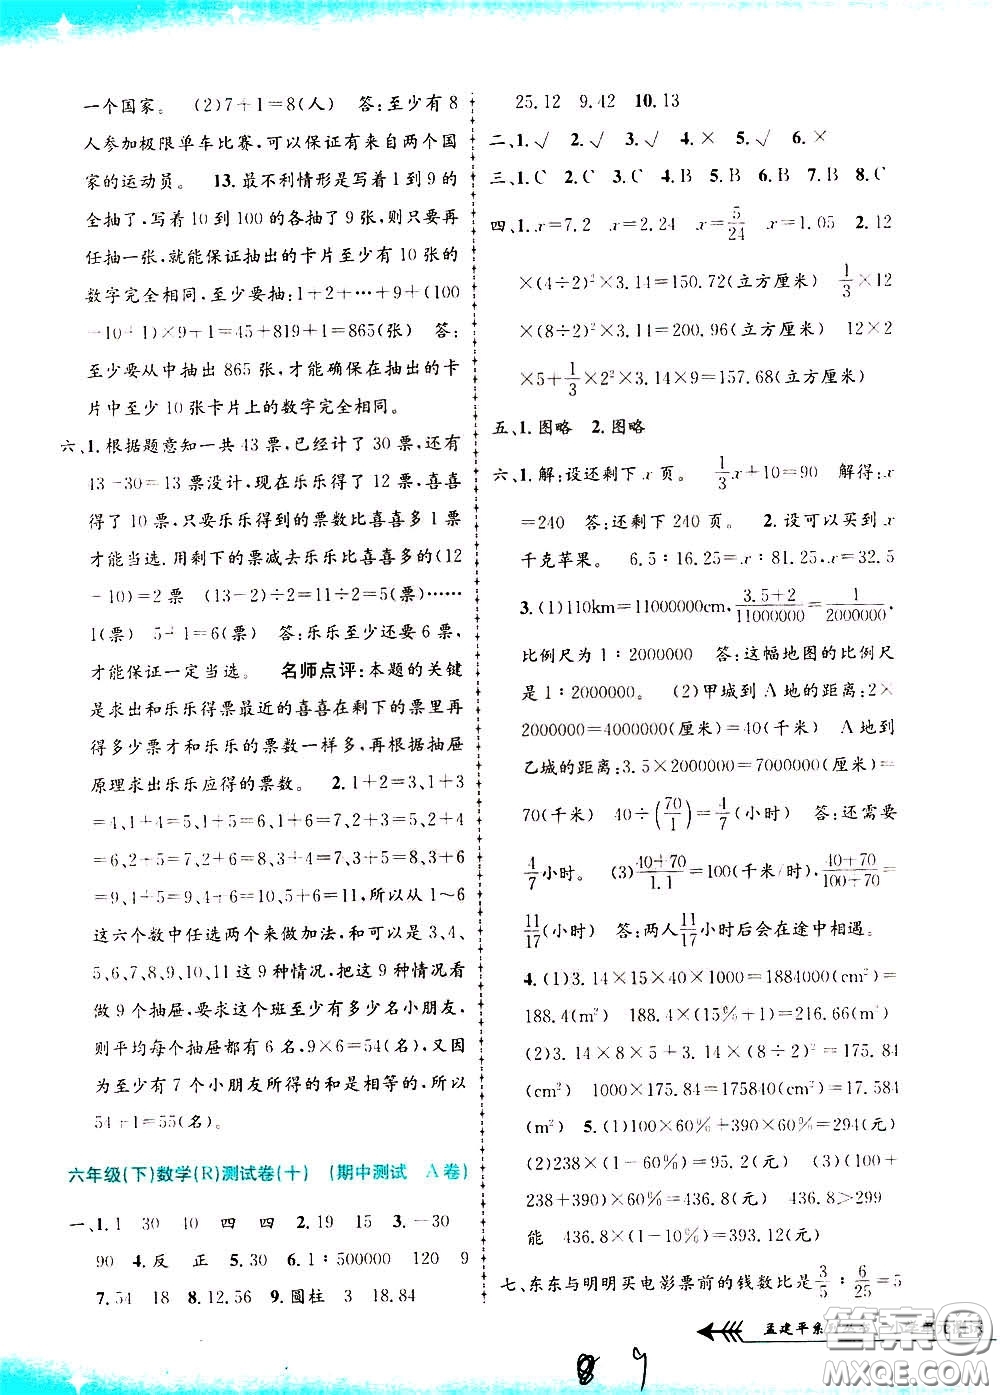 一个国家。 (2)7+1=8(人) 答:至少有 8
人参加极限单车比赛,可以保证有来自两个国
家的运动员。 13.最不利情形是写着 1 到 9 的
全抽了,写着 10 到 100 的各抽了 9 张,则只要再
任抽一张,就能保证抽出的卡片至少有 10 张的
数字完全相同,至少要抽:1+2+…+9+(100
-10+1)×9+1=45+819+1=865(张) 答:
至少要从中抽出 865 张,才能确保在抽出的卡
片中至少 10 张卡片上的数字完全相同。
六、1.根据题意知一共 43 票,已经计了 30 票,还有
43-30=13 票没计,现在乐乐得了 12 票,喜喜
得了 10 票,只要乐乐得到的票数比喜喜多 1 票
才能当选.用剩下的票减去乐乐比喜喜多的(12
-10)=2 票 (13-2)÷2=11÷2=5(票)……
1(票) 5+1=6(票) 答:乐乐至少还要 6 票,
才能保证一定当选。 名师点评:本题的关键
是求出和乐乐得票最近的喜喜在剩下的票里再
得多少票才和乐乐的票数一样多,再根据抽屉
原理求出乐乐应得的票数。 2.1+2=3,1+3
=4,1+4=5,1+5=6,1+6=7,2+3=5,2+4
=6,2+5=7,2+6=8,3+4=7,3+5=8,3+6
=9,4+5=9,4+6=10,5+6=11,所以从 1~6
这六个数中任选两个来做加法,可以是 3、4、
5、6、7、8、9、10、11 这 9 种情况,把这 9 种情况看
做 9 个抽屉,要求这个班至少有多少名小朋友,
则平均每个抽屉都有 6 名,9×6=54(名),又因
为至少有 7 个小朋友所得的和是相等的,所以
54+1=55(名)。
六年级(下)数学(R)测试卷(十) (期中测试 A 卷)
一、1.1 30 40 四 四 2.19 15 3.-30
90 4.反 正 5.30 6.1:500000 120 9
7.54 18 8.12.56 9.圆柱 3 18.84
25.12 9.42 10.13
二、1.√ 2.× 3.√ 4.× 5.√ 6.×
三、1.C 2.C 3.C 4.B 5.B 6.B 7.B 8.C
四、1.x=7.2 x=2.24 x=5/24 x=1.05 2.12
×(4÷2)²×3.14=150.72(立方厘米) 1/3×12
×(8÷2)²×3.14=200.96(立方厘米) 12×2
×5+1/3×2×2×3.14×9=157.68(立方厘米)
五、1.图略 2.图略
六、1.解:设还剩下 x 页。 1/3x+10=90 解得:x
=240 答:还剩下 240 页。 2.设可以买到 x
千克苹果。 6.5:16.25=x:81.25 x=32.5
3.(1)110km=11000000cm,3.5+2/11000000=1/2000000,
比例尺为 1:2000000 答:这幅地图的比例尺
是 1:2000000。 (2)甲城到 A 地的距离:2×
2000000=4000000(厘米)=40(千米) A 地到
乙城的距离:3.5×2000000=7000000(厘米)=
70(千米) 40÷(70/1)=4/7(小时) 答:还需要
4/7小时。 (3)40+70/1.1=100(千米/时) 40+70/100+70=
11/17(小时) 答:两人11/17小时后会在途中相遇。
4.(1)3.14×15×40×1000=1884000(cm²)=
188.4(m²) 188.4×(15%+1)=216.66(m²)
(2)3.14×5×8+3.14×(8÷2)²=175.84
(cm²) 1000×175.84=175840(cm²)=17.584
(m²) 5.(1)238×(1-60%)+390×60%=
238×0.4+390×0.6=95.2+234=329.2(元)
329.2×(1-20%)=263.36(元) (2)(100+
238+390)×60%=436.8(元) 436.8>299
能 436.8×(1-10%)=393.12(元)
七、东东与明明买电影票前的钱数比是3/5:6/25=5
孟建平系
答案圈
MXQE.COM
8 9